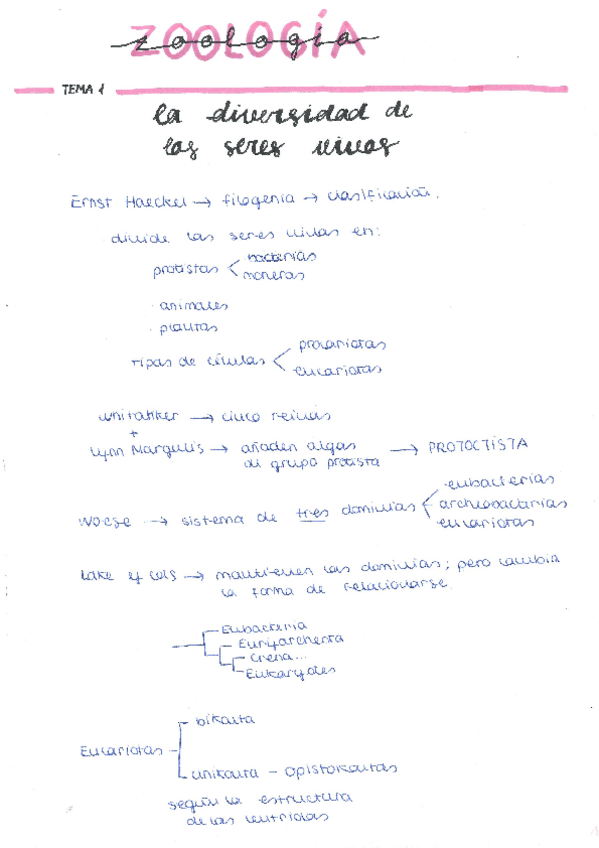 ZOOLOGÍA
zoología
TEMA 1
la diversidad de
los seres vivos
Ernst Haeckel → filogenia → clasificación.
divide los seres vivos en:
protistas < bacterias
moneras
· animales
· plantas
tipos de células < procariotas
eucariotas
Whittahker → cinco reinos
+
Lynn Margulis → añaden algas → PROTOCTISTA
al grupo protista
Woese → sistema de tres dominios < eubacterias
archeobacterias
eucariotas
Lake y cols → mantienen los dominios; pero cambia
la forma de relacionarse
Eubacteria
Euryarcheota
Crena...
Eukaryotes
Eucariotas
bikonta
unikonta - opistokontas
según la estructura
de las centriolas